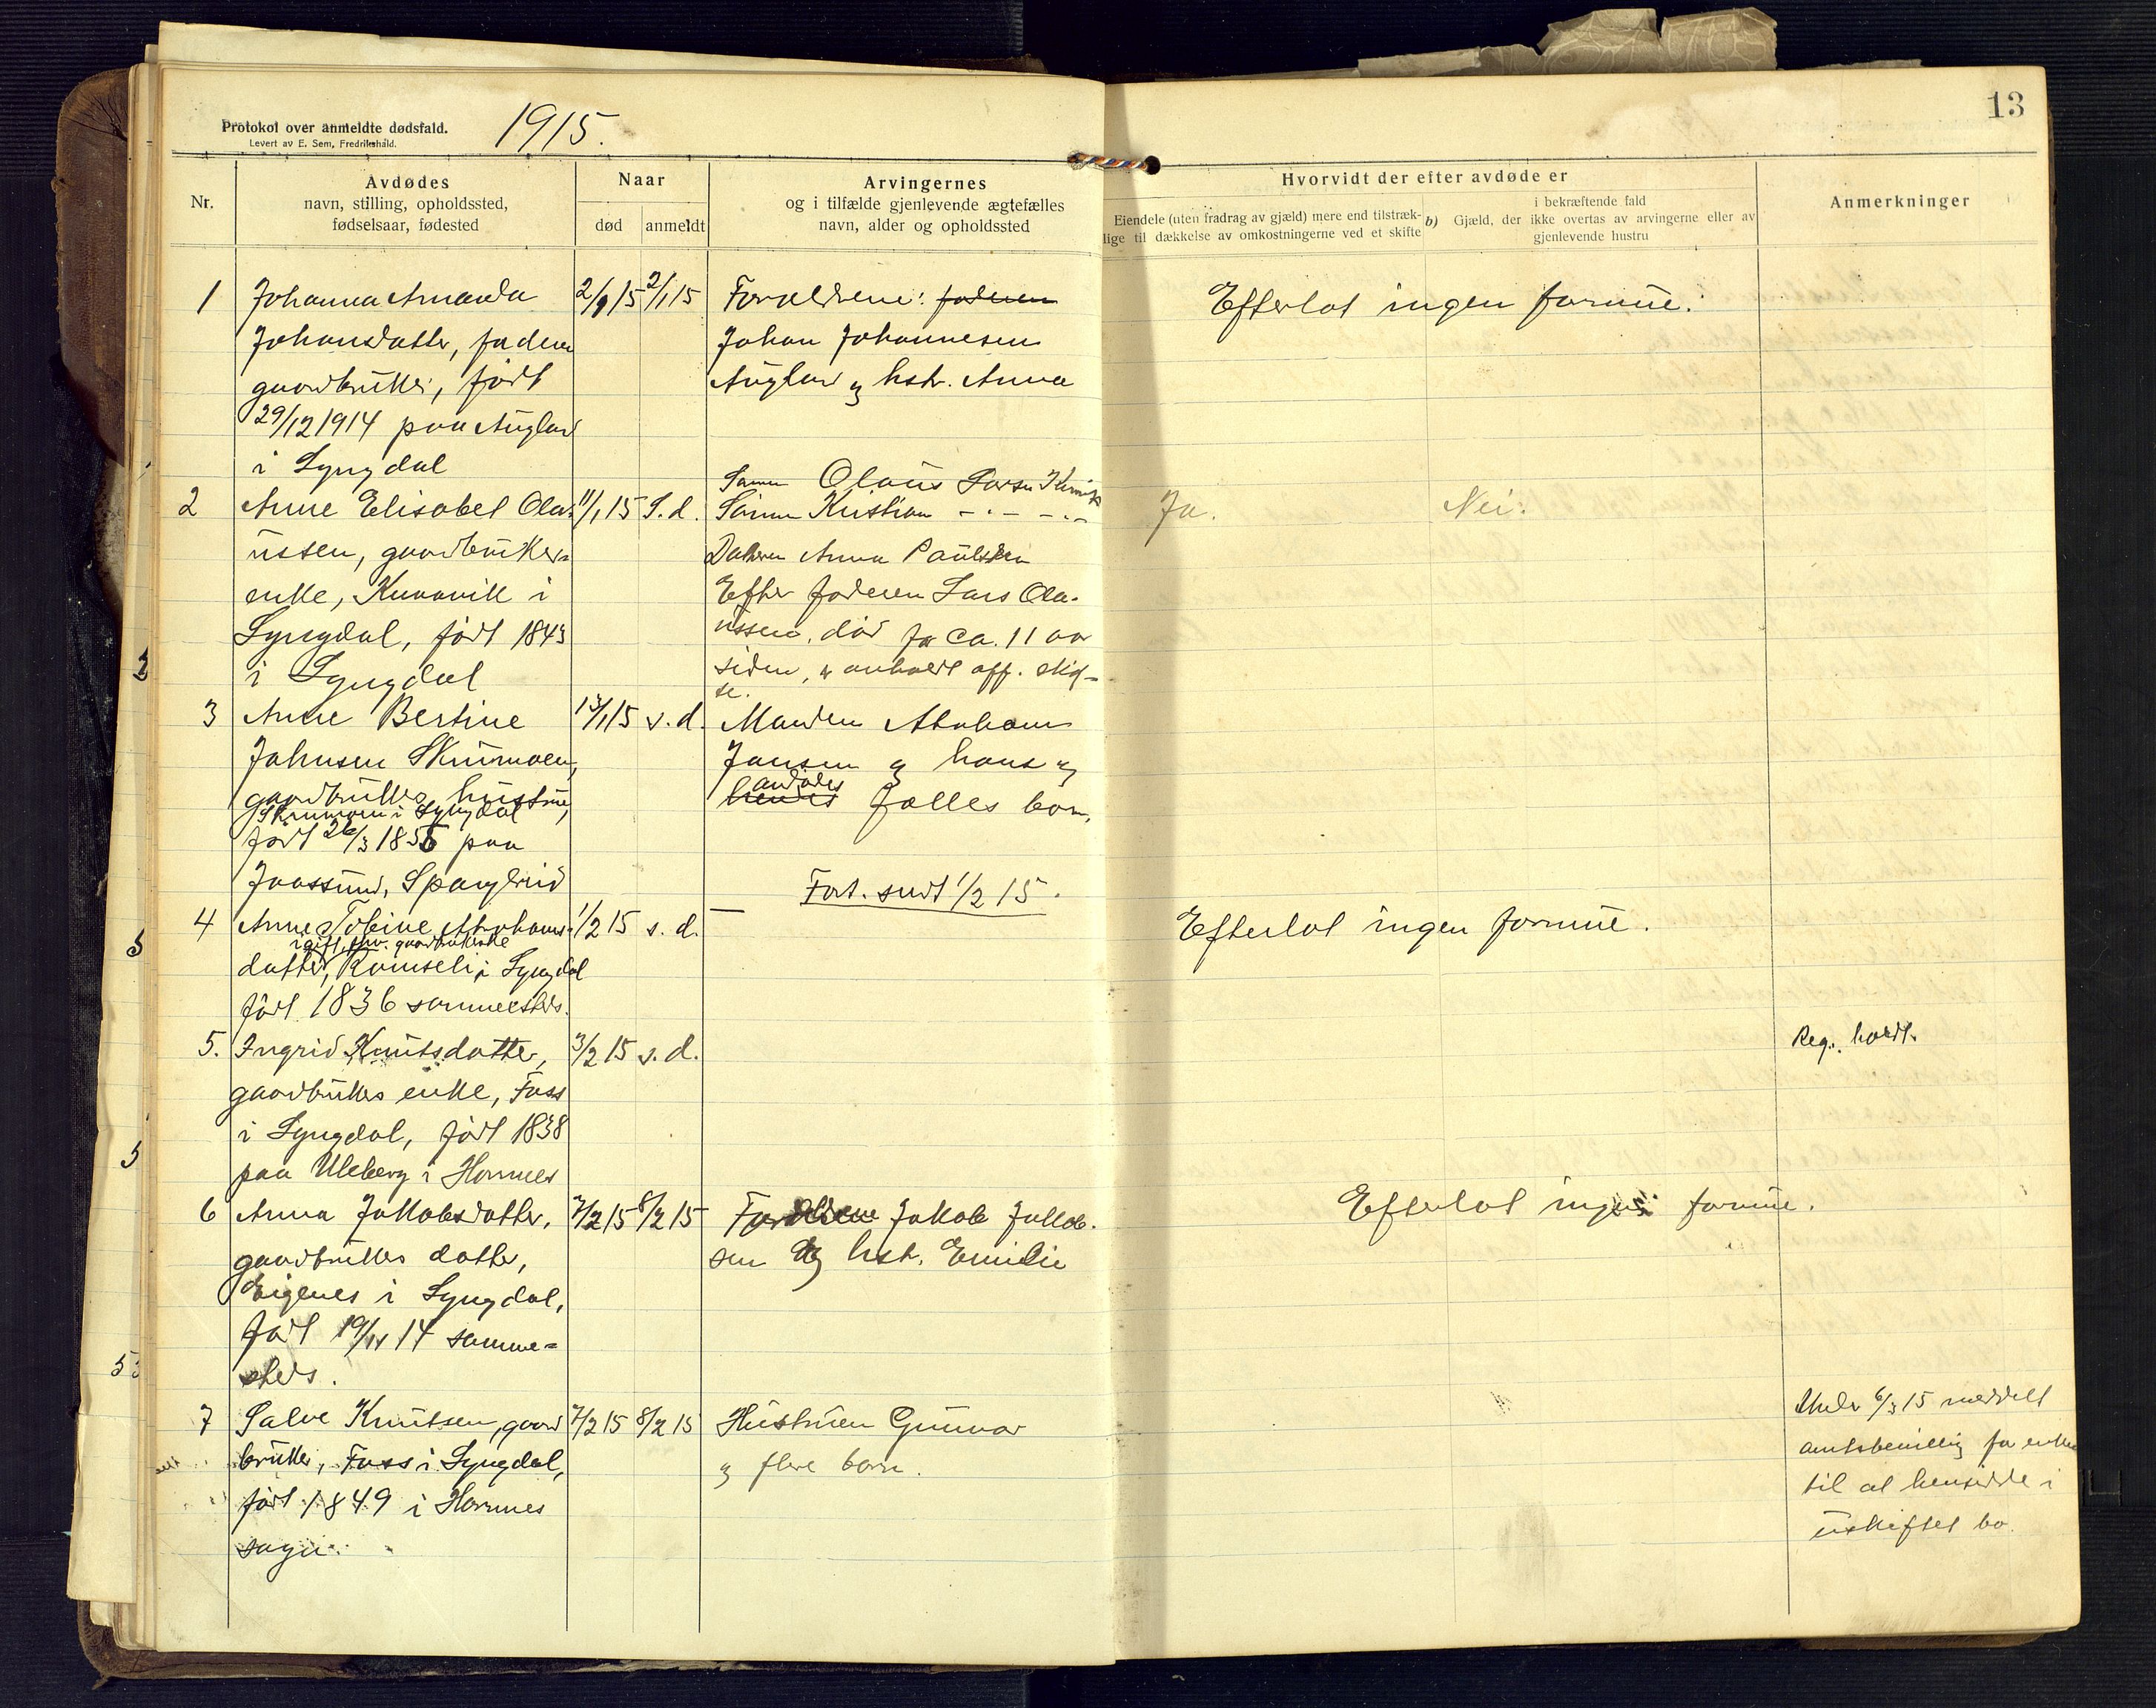 13
Protokol over anmeldte dødsfald.
Levert av E. Sem, Fredrikshald.
1915.
Nr.
Avdødes
navn, stilling, opholdssted,
fødselsaar, fødested
Naar
død
anmeldt
Arvingernes
og i tilfælde gjenlevende ægtefælles
navn, alder og opholdssted
Hvorvidt der efter avdøde er
Eiendele (uten fradrag av gjæld) mere end tilstræk-
lige til dækkelse av omkostningerne ved et skifte
i bekræftende fald
b) Gjæld, der ikke overtas av arvingerne eller av
gjenlevende hustru
Anmerkninger
1
Johanna Amanda
Johansdatter, faderen
gaardbruker, født
29/12 1914 paa Auglend
i Lyngdal
2/1 15
2/1 15
Forældrene: faderen
Johan Johannesen
Auglend og hstr. Anna
Efterlot ingen formue.
2
Anne Elisabet Ola-
ussen, gaardbruker-
enke, Kvavik i
Lyngdal, født 1843
i Lyngdal
11/1 15
S. d.
Sønn Olaus Larsen Kvavik
Sønnen Kristian -.- -.-
Datteren Anna Paulsen
Efter faderen Lars Ola-
ussen, død for ca. 11 aar
siden, er avholdt off. skif-
te.
Ja.
Nei.
3
Anne Bertine
Johnsen Skrumoen,
gaardbrukers hustru,
Skrumoen i Lyngdal
født 26/3 1855 paa
Jaassund, Spangereid
13/1 15
s. d.
Manden Abraham
Jansen og hans og
hendes avdødes fælles børn.
Fort. sendt 1/2 15.
4
Anne Tobine Abrahams-
ugift, fhv. gaardbrukerske
datter, Romseli i Lyngdal
født 1836 sammesteds.
1/2 15
s. d.
—
Efterlot ingen formue.
5.
Ingrid Knutsdatter,
gaardbrukers enke, Foss
i Lyngdal, født 1838
paa Uleberg i Hornnes
3/2 15
s. d.
Reg. holdt.
6
Anna Jakobsdatter,
gaardbrukers datter,
Eigenes i Lyngdal,
født 19/11 14 samme-
steds.
7/2 15
8/2 15
Forældrene Jakob Jakob-
sen og hstr. Emilie
Efterlot ingen formue.
7
Salve Knutsen, gaard
bruker, Foss i Lyngdal,
født 1849 i Hornnes
sogn.
7/2 15
8/2 15
Hustruen Gunvor
og flere børn.
Under 6/3 15 meddelt
amtsbevilling for enken
til at hensidde i
uskiftet bo.